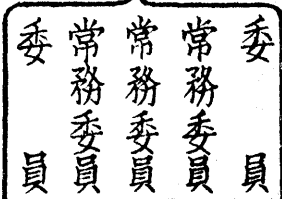 委員
常務委員
常務委員
常務委員
委員